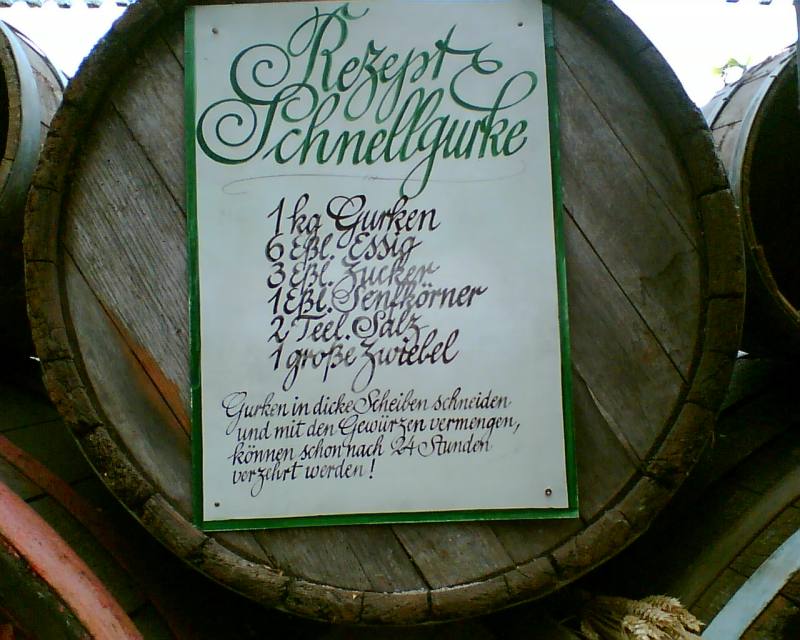 Rezept
Schnellgurke
1 kg Gurken
6 Eßl. Essig
3 Eßl. Zucker
1 Eßl. Senfkörner
2 Teel. Salz
1 große Zwiebel
Gurken in dicke Scheiben schneiden
und mit den Gewürzen vermengen,
können schon nach 24 Stunden
verzehrt werden!